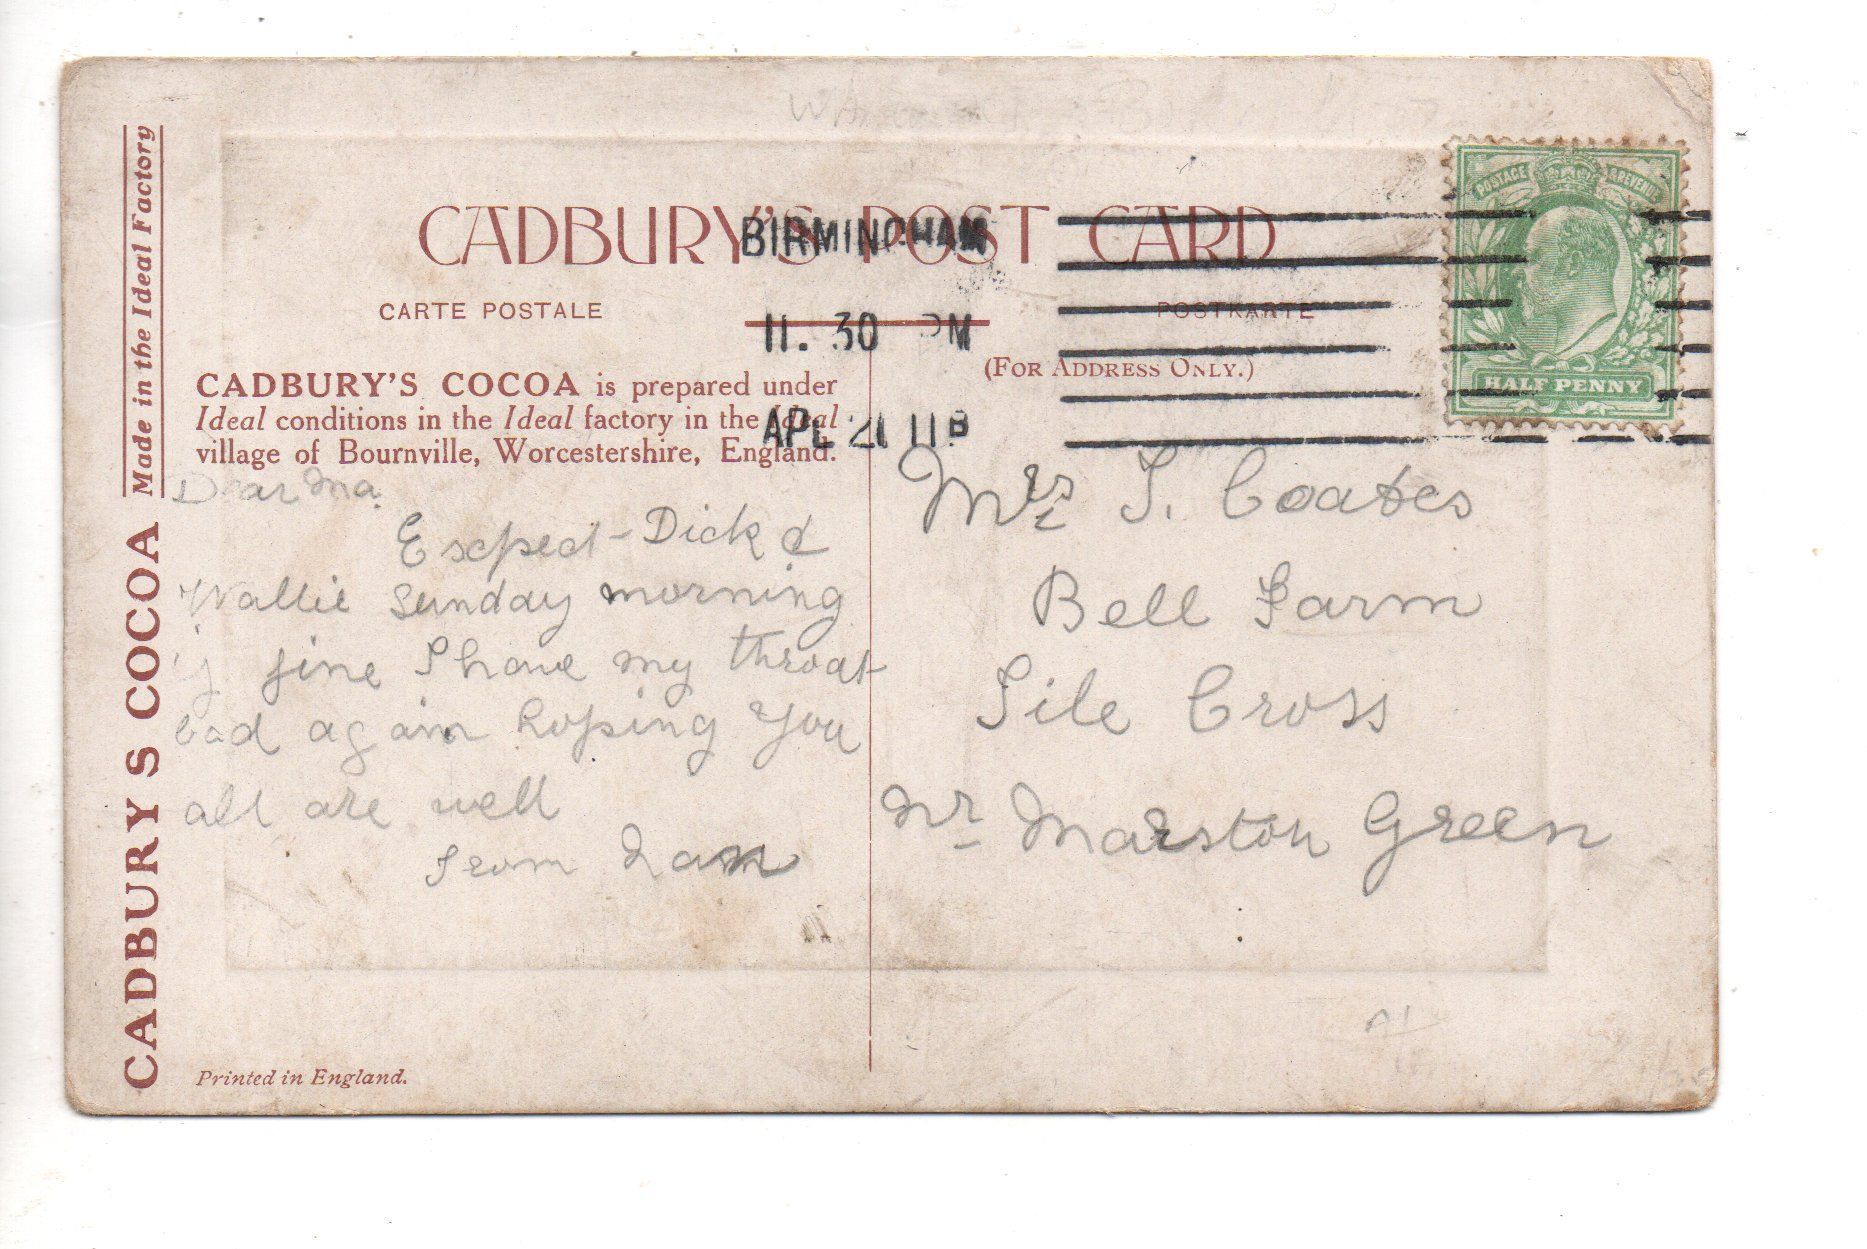 CADBURY'S POST CARD
CARTE POSTALE
POSTKARTE
BIRMINGHAM
11. 30 PM
APL 21 11
POSTAGE & REVENUE
HALF PENNY
(FOR ADDRESS ONLY.)
CADBURY'S COCOA is prepared under
Ideal conditions in the Ideal factory in the Ideal
village of Bournville, Worcestershire, England.
CADBURY S COCOA Made in the Ideal Factory
Dear Ma
Expect Dick &
Wallie Sunday morning
if fine I have my throat
bad again hoping you
all are well
from
Mrs T. Coates
Bell Farm
Tile Cross
Nr Marston Green
Printed in England.